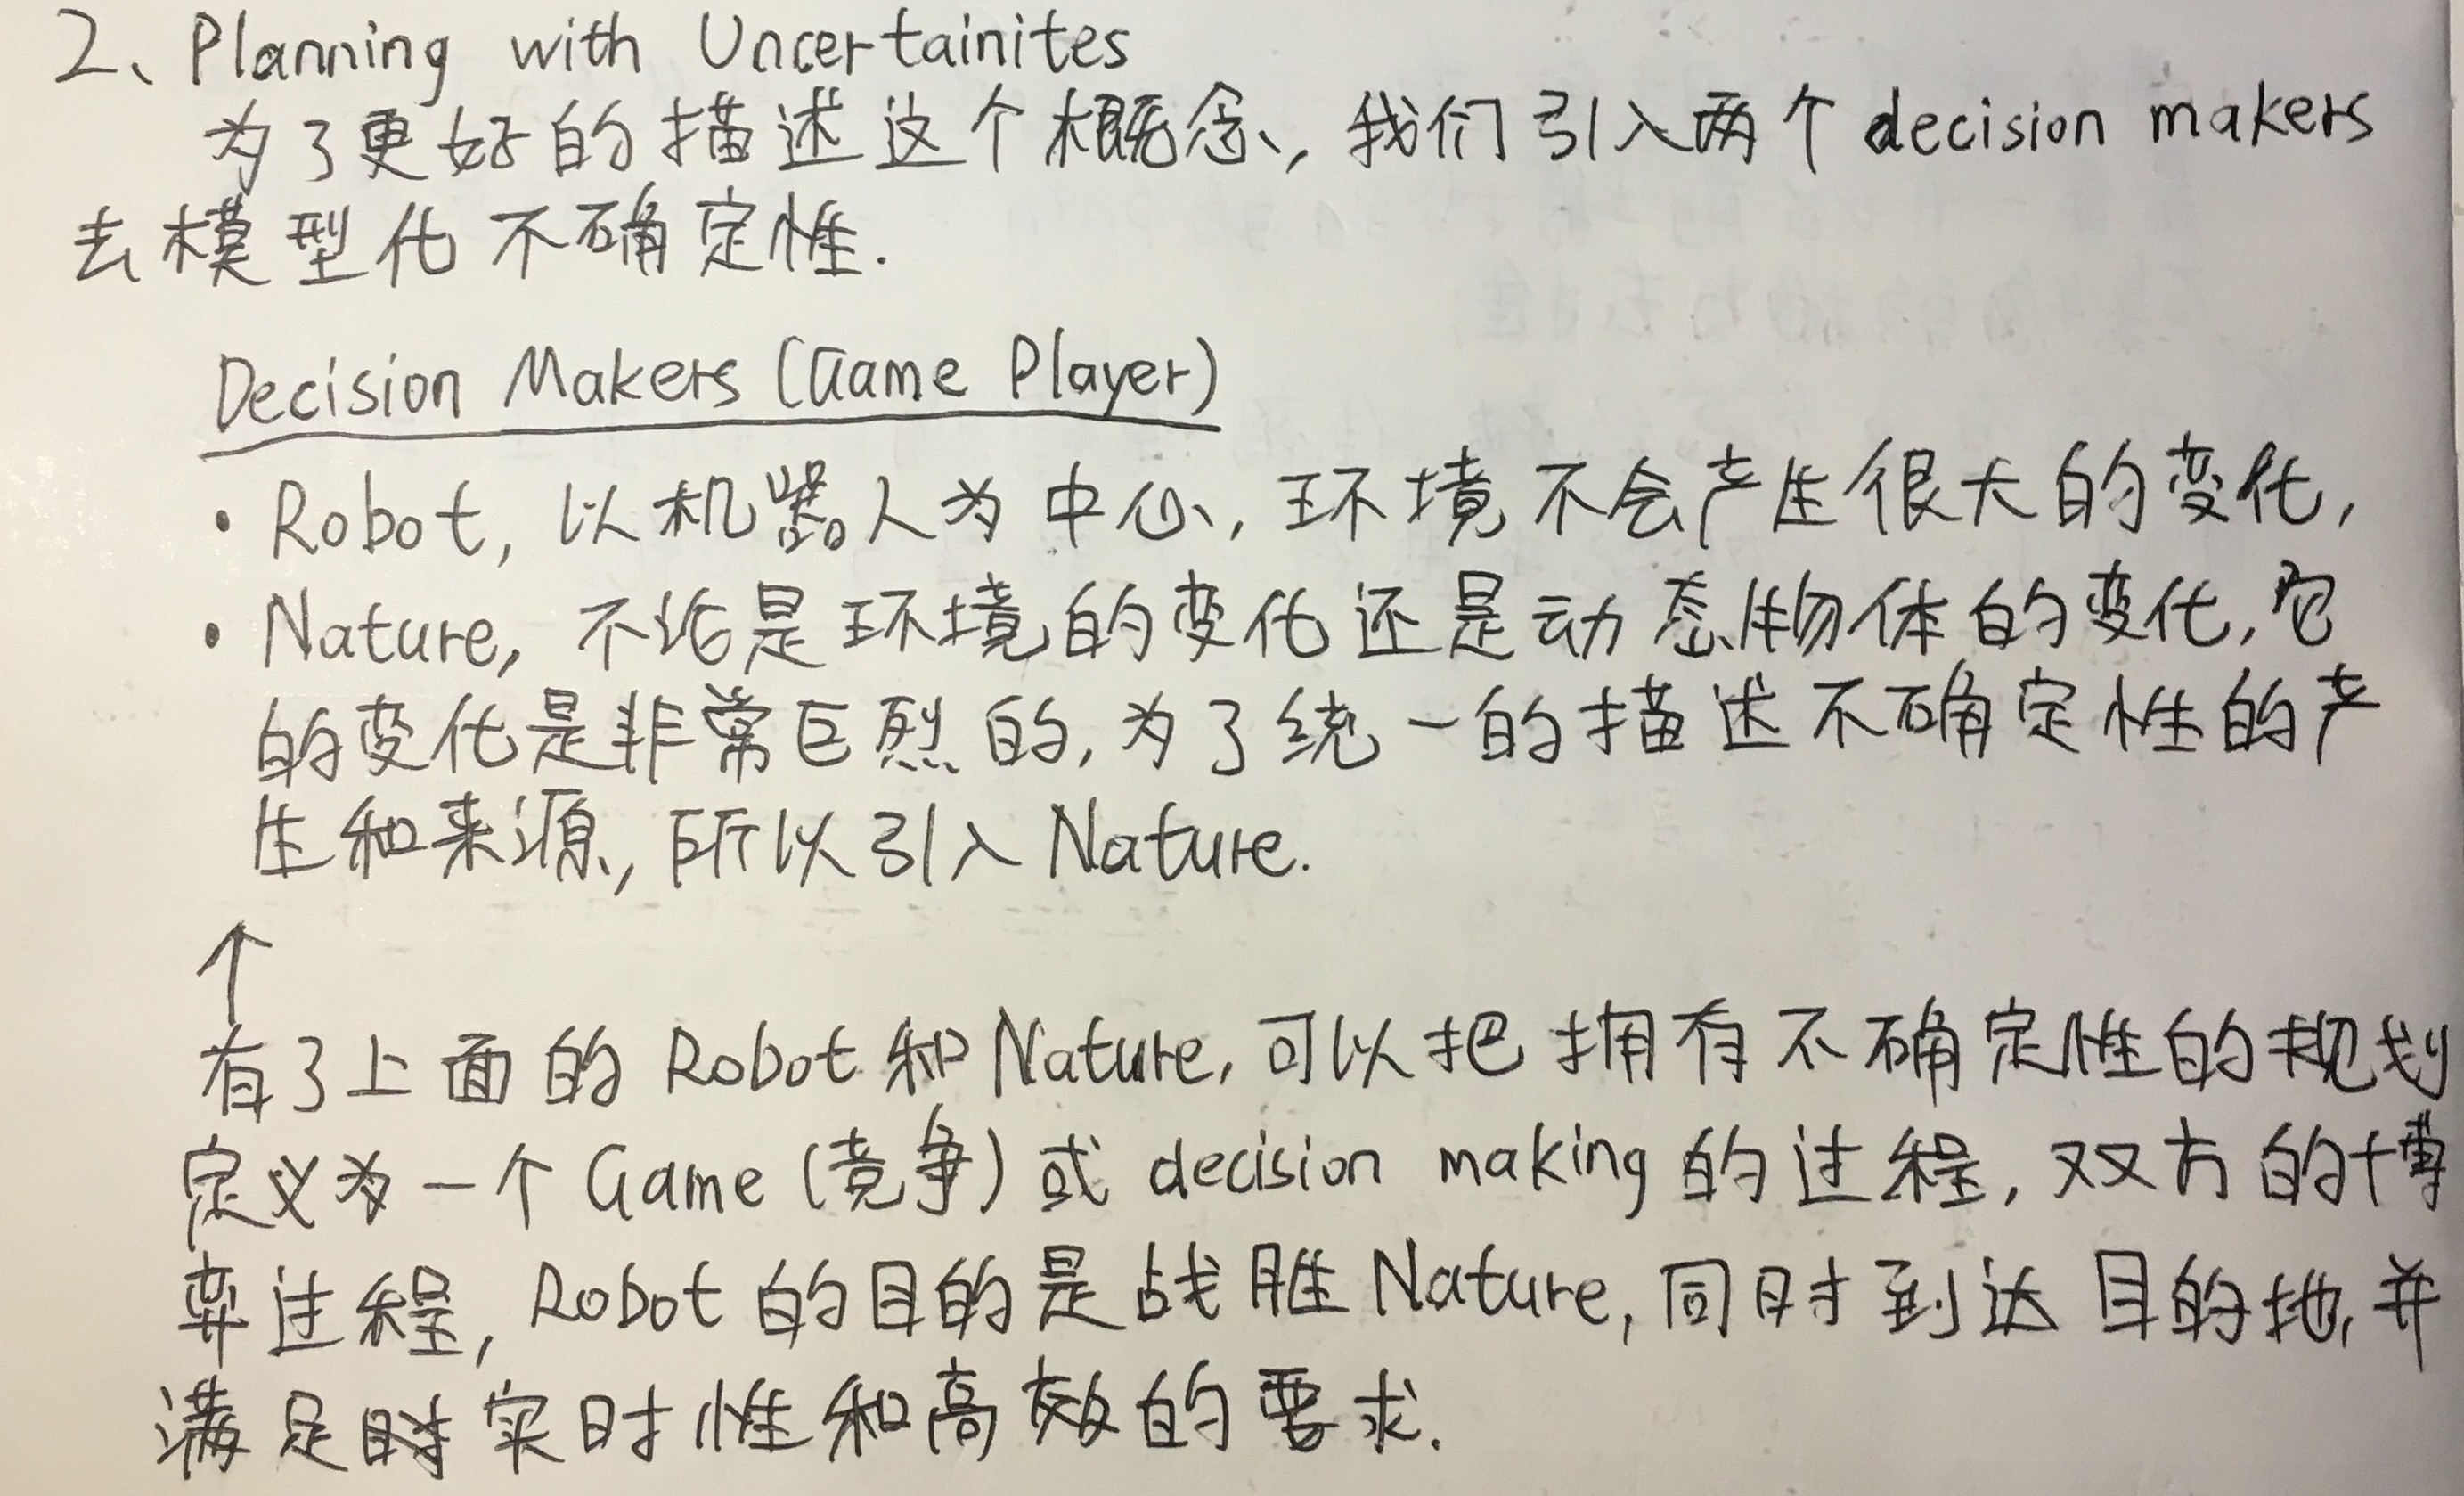 2、Planning with Uncertainites
为了更好的描述这个概念,我们引入两个decision makers
去模型化不确定性.
Decision Makers (Game Player)
· Robot, 以机器人为中心, 环境不会产生很大的变化,
· Nature, 不论是环境的变化还是动态物体的变化,它
的变化是非常巨烈的,为了统一的描述不确定性的产
生和来源,所以引入Nature.
↑
有了上面的Robot和Nature,可以把拥有不确定性的规划
定义为一个Game(竞争)或decision making的过程,双方的博
弈过程,Robot的目的是战胜Nature,同时到达目的地,并
满足实时性和高效的要求.